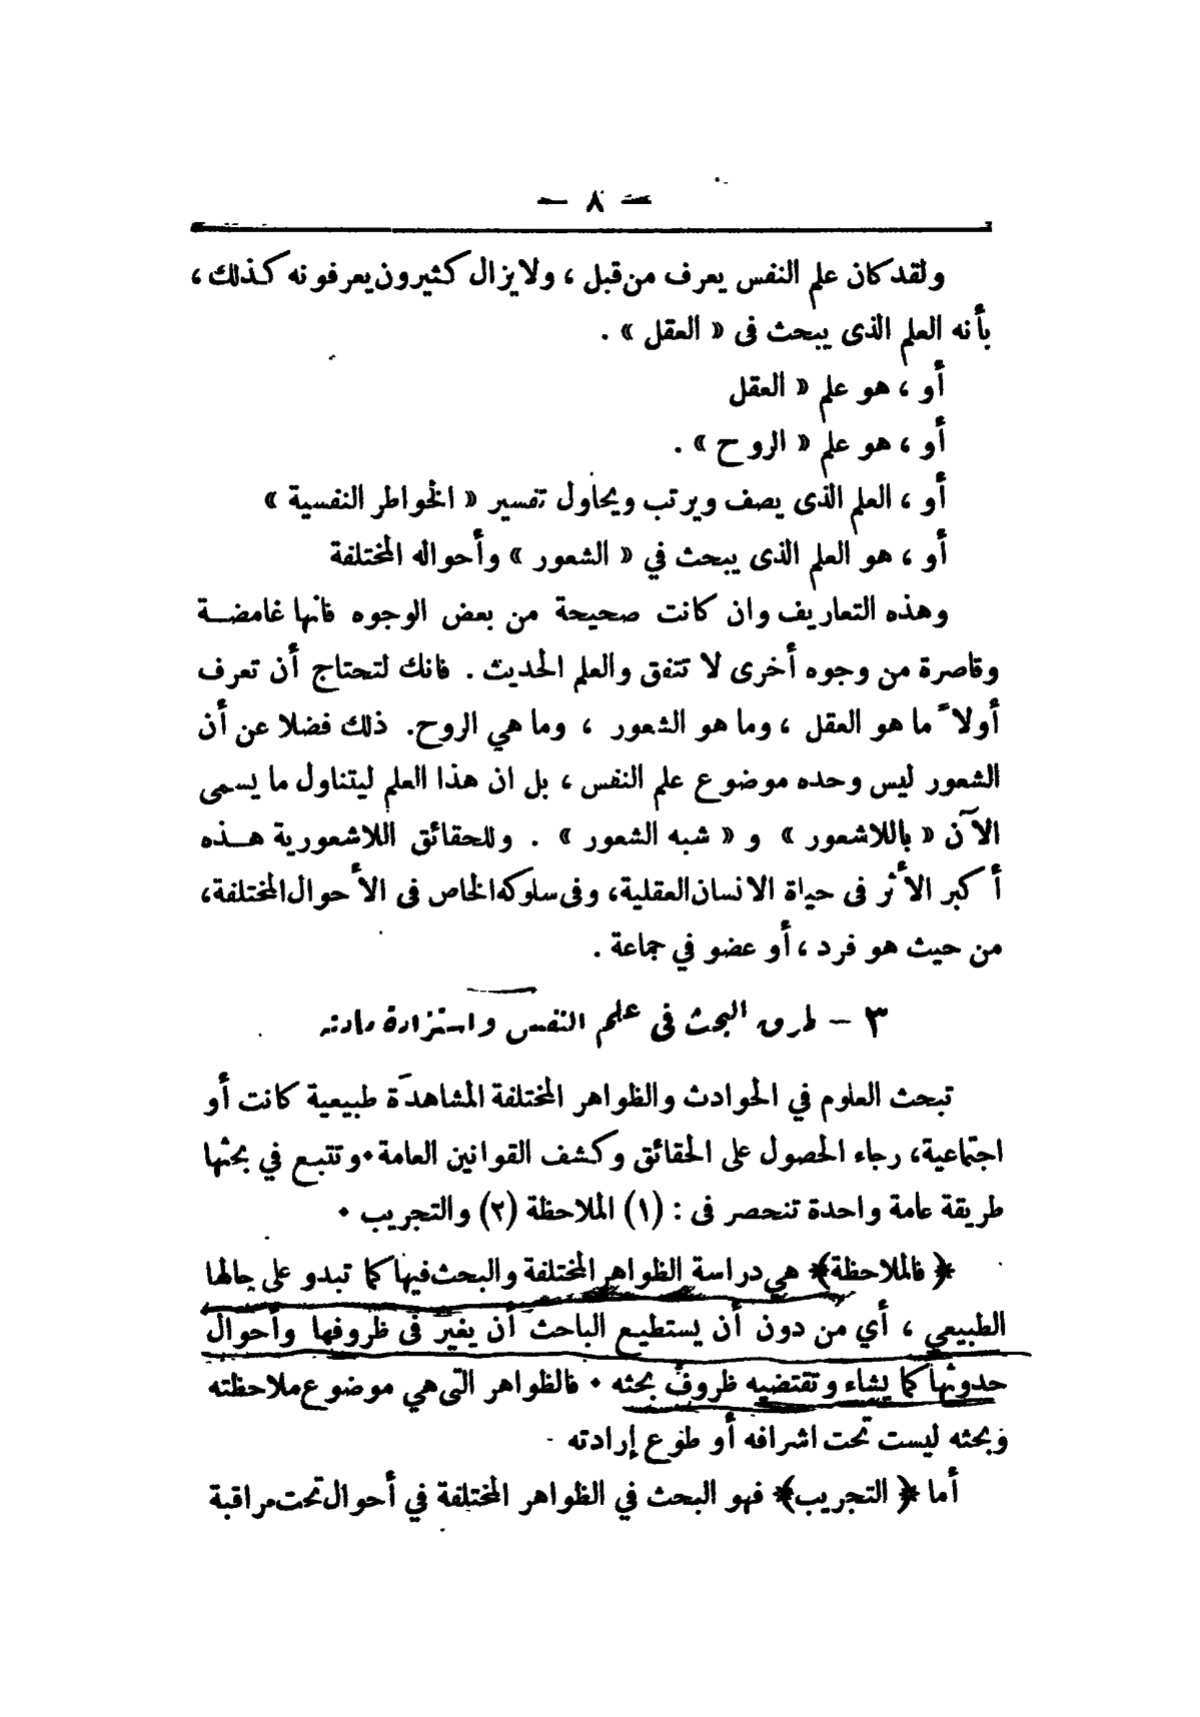 — ٨ —
ولقد كان علم النفس يعرف من قبل ، ولا يزال كثيرون يعرفونه كذلك ،
بأنه العلم الذى يبحث فى « العقل » .
أو ، هو علم « العقل
أو ، هو علم « الروح » .
أو ، العلم الذى يصف ويرتب ويحاول تفسير « الخواطر النفسية »
أو ، هو العلم الذى يبحث في « الشعور » وأحواله المختلفة
وهذه التعاريف وان كانت صحيحة من بعض الوجوه فانها غامضـة
وقاصرة من وجوه أخرى لا تتفق والعلم الحديث . فانك لتحتاج أن تعرف
أولاً ما هو العقل ، وما هو الشعور ، وما هي الروح. ذلك فضلا عن أن
الشعور ليس وحده موضوع علم النفس ، بل ان هذا العلم ليتناول ما يسمى
الآن « باللاشعور » و « شبه الشعور » . وللحقائق اللاشعورية هـذه
أكبر الأثر فى حياة الانسان العقلية، وفى سلوكه الخاص فى الأحوال المختلفة،
من حيث هو فرد ، أو عضو في جماعة .
٣ – طرق البحث فى علم النفس واستزادة مادته
تبحث العلوم في الحوادث والظواهر المختلفة المشاهدة طبيعية كانت أو
اجتماعية، رجاء الحصول على الحقائق وكشف القوانين العامة ٠ وتتبع في بحثها
طريقة عامة واحدة تنحصر فى : (١) الملاحظة (٢) والتجريب ٠
﴿ فالملاحظة ﴾ هي دراسة الظواهر المختلفة والبحث فيها كما تبدو على حالها
الطبيعي ، أي من دون أن يستطيع الباحث أن يغير فى ظروفها وأحوال
حدوثها كما يشاء وتقتضيه ظروف بحثه ٠ فالظواهر التى هي موضوع ملاحظته
وبحثه ليست تحت اشرافه أو طوع إرادته
أما ﴿ التجريب ﴾ فهو البحث في الظواهر المختلفة في أحوال تحت مراقبة